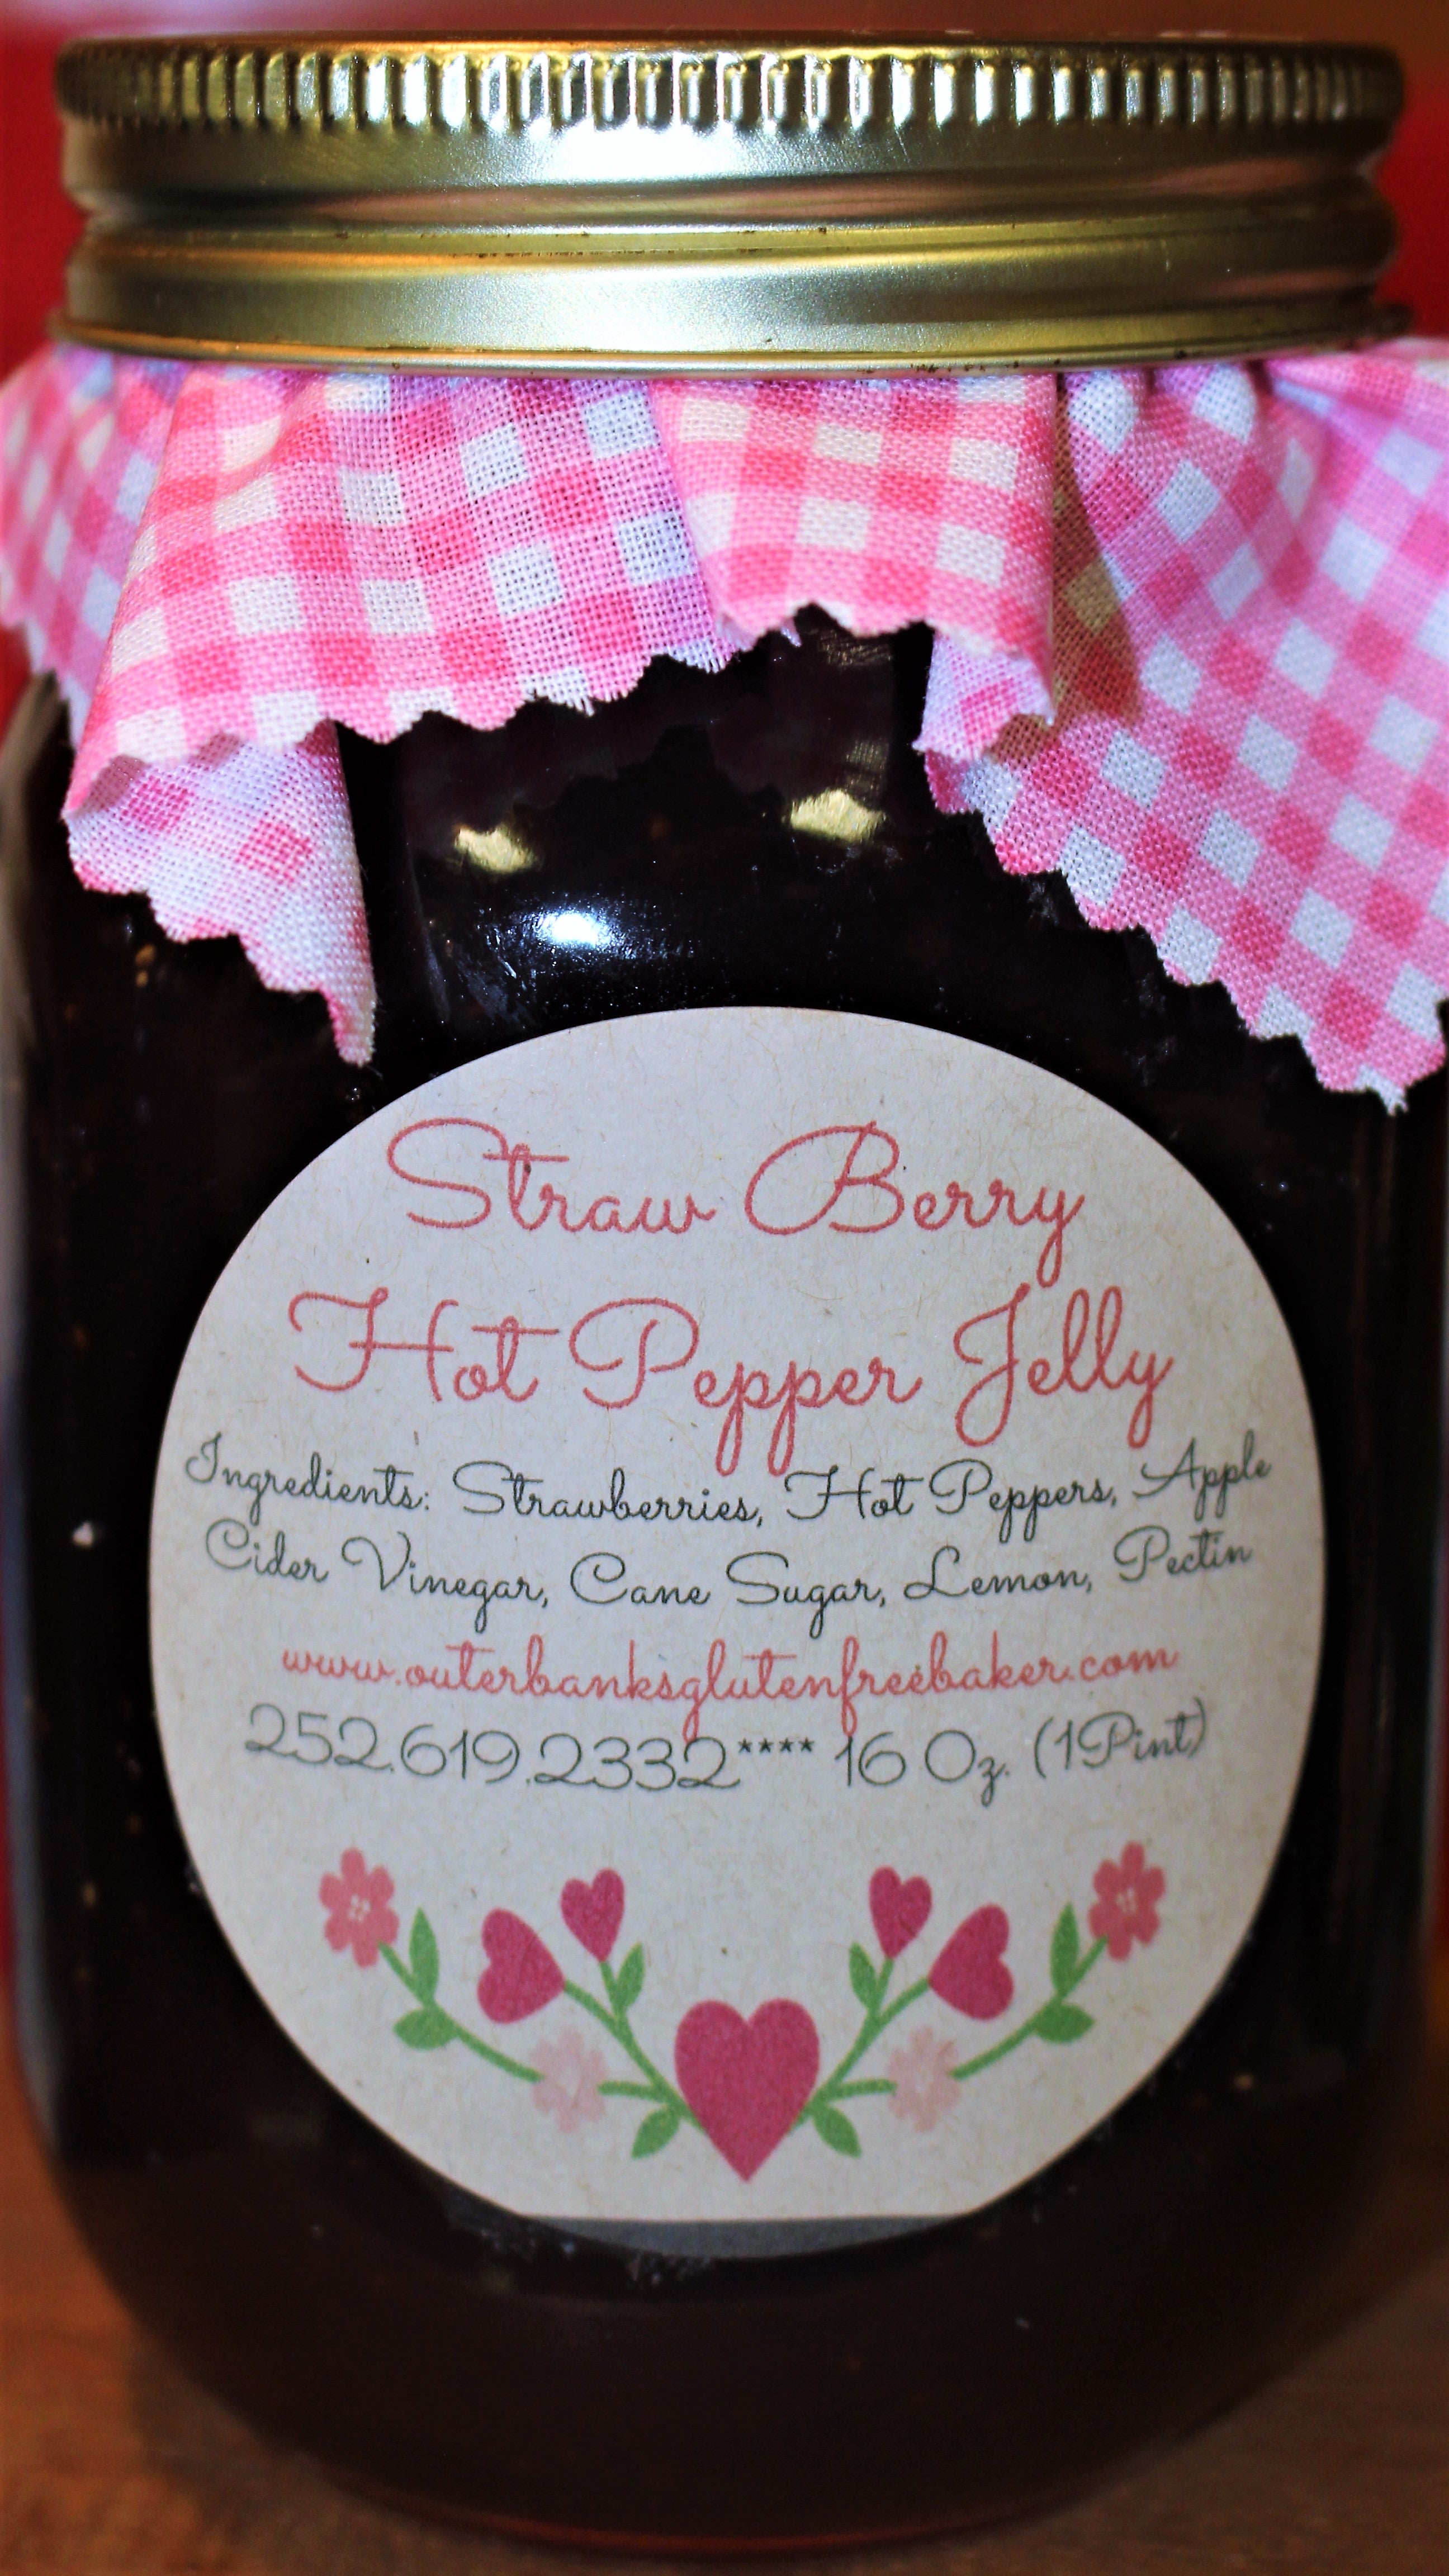 Straw Berry
Hot Pepper Jelly
Ingredients: Strawberries, Hot Peppers, Apple
Cider Vinegar, Cane Sugar, Lemon, Pectin
www.outerbanksglutenfreebaker.com
252.619.2332**** 16 Oz. (1Pint)